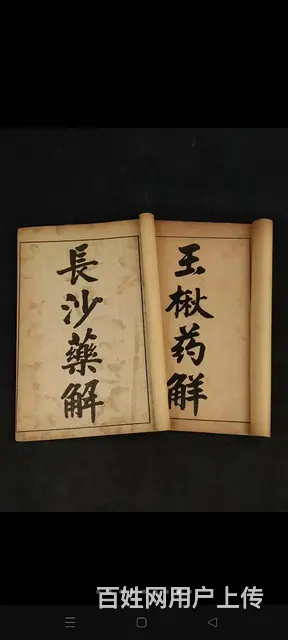 長沙藥解
玉楸药觧
百姓网用户上传